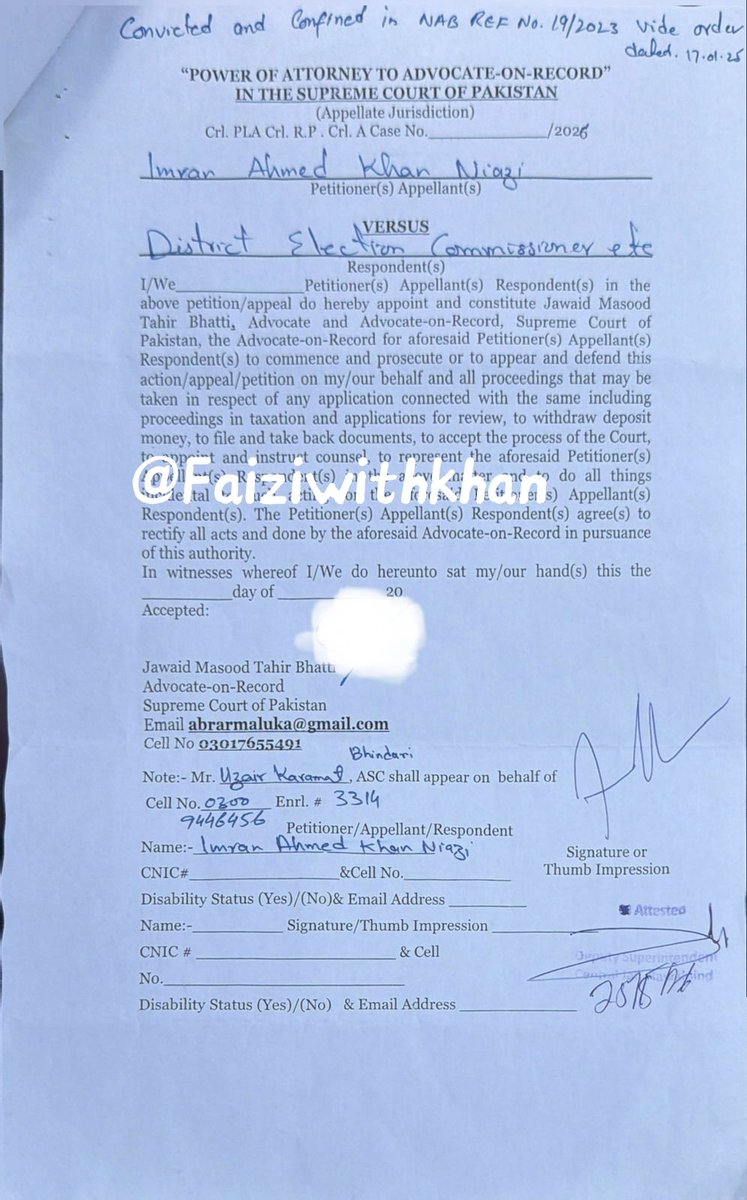 Convicted and Confined in NAB REF No. 19/2023 vide order
dated. 17.01.25
“POWER OF ATTORNEY TO ADVOCATE-ON-RECORD”
IN THE SUPREME COURT OF PAKISTAN
(Appellate Jurisdiction)
Crl. PLA Crl. R.P . Crl. A Case No.______________/2026
Imran Ahmed Khan Niazi
Petitioner(s) Appellant(s)
VERSUS
District Election Commissioner etc
Respondent(s)
I/We______________ Petitioner(s) Appellant(s) Respondent(s) in the
above petition/appeal do hereby appoint and constitute Jawaid Masood
Tahir Bhatti, Advocate and Advocate-on-Record, Supreme Court of
Pakistan, the Advocate-on-Record for aforesaid Petitioner(s) Appellant(s)
Respondent(s) to commence and prosecute or to appear and defend this
action/appeal/petition on my/our behalf and all proceedings that may be
taken in respect of any application connected with the same including
proceedings in taxation and applications for review, to withdraw deposit
money, to file and take back documents, to accept the process of the Court,
to appoint and instruct counsel, to represent the aforesaid Petitioner(s)
@Faiziwithkhan
Respondent(s). The Petitioner(s) Appellant(s) Respondent(s) agree(s) to
rectify all acts and done by the aforesaid Advocate-on-Record in pursuance
of this authority.
In witnesses whereof I/We do hereunto sat my/our hand(s) this the
__________day of __________ 20
Accepted:
Jawaid Masood Tahir Bhatti
Advocate-on-Record
Supreme Court of Pakistan
Email abrarmaluka@gmail.com
Cell No 03017655491
Bhindari
Note:- Mr. Uzair Karamat, ASC shall appear on behalf of
Cell No. 0300 Enrl. # 3314
9446456 Petitioner/Appellant/Respondent
Name:- Imran Ahmed Khan Niazi
Signature or
Thumb Impression
CNIC#________________&Cell No.___________
Disability Status (Yes)/(No)& Email Address ________
Attested
Name:-__________ Signature/Thumb Impression __________
Deputy Superintendent
CNIC # ______________________ & Cell
No.___________________________
Disability Status (Yes)/(No) & Email Address ____________